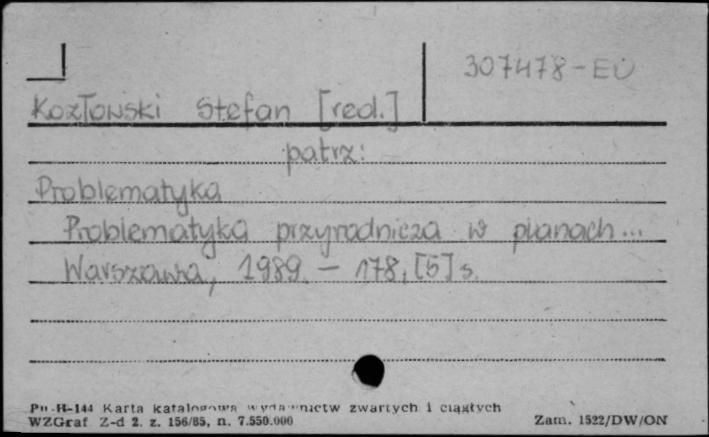 307478-EU
Kozłowski Stefan [red.]
patrz:
Problematyka
Problematyka przyrodnicza w planach...
Warszawa, 1989. - 178, [5] s.
Pu-H-144 Karta katalogowa wydawnictw zwartych i ciągłych
WZGraf Z-d 2. z. 156/85, n. 7.550.000 Zam. 1522/DW/ON